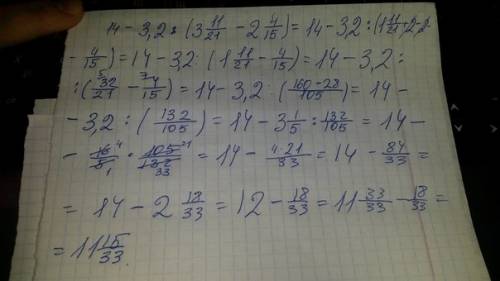 14 - 3,2 : (3 11/21 - 2 4/15) = 14 - 3,2 : (1 11/21
- 4/15) = 14 - 3,2 : (1 11/21 - 4/15) = 14 - 3,2 :
: (32/21 - 4/15) = 14 - 3,2 : (160-28/105) = 14 -
- 3,2 : (132/105) = 14 - 3 1/5 : 132/105 = 14 -
- 16/5 · 105/132 = 14 - 4·21/33 = 14 - 84/33 =
= 14 - 2 18/33 = 12 - 18/33 = 11 33/33 - 18/33 =
= 11 15/33.